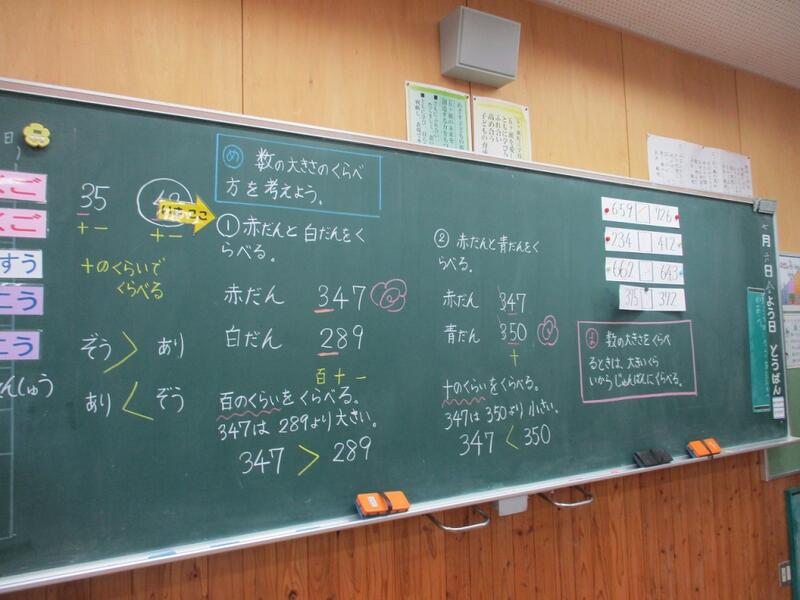 くご
くご
すう
こう
こう
んしゅう
35
+-
+-
いまここ
十のくらいで
くらべる
ぞう > あり
あり < ぞう
め 数の大きさのくらべ
方を考えよう。
① 赤だんと白だんをく
らべる。
赤だん 347
白だん 289
百十一
百のくらいをくらべる。
347は289より大きい。
347 > 289
② 赤だんと青だんをく
らべる。
赤だん 347
青だん 350
十
十のくらいをくらべる。
347は350より小さい。
347 < 350
659 726
234 412
662 643
375 372
ま 数の大きさをくらべ
るときは、大きいくら
いからじゅんばんにくらべる。
月 日 ようび とうばん